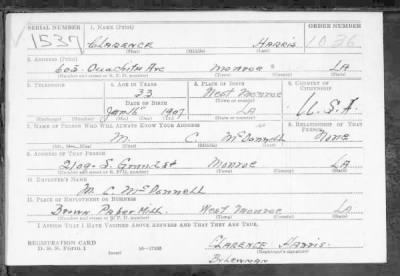 SERIAL NUMBER 1. NAME (Print) ORDER NUMBER
1537 CLARENCE HARRIS 1036
(First) (Middle) (Last)
2. ADDRESS (Print)
603 Ouachita Ave Monroe LA
(Number and street or R. F. D. number) (Town) (County) (State)
3. TELEPHONE 4. AGE IN YEARS 5. PLACE OF BIRTH 6. COUNTRY OF CITIZENSHIP
33 West Monroe
DATE OF BIRTH (Town or county)
1907 LA U.S.A.
(Exchange) (Number) (Mo.) (Day) (Yr.) (State or country)
7. NAME OF PERSON WHO WILL ALWAYS KNOW YOUR ADDRESS 8. RELATIONSHIP OF THAT PERSON
M. C. McDonnell None
(Mr., Mrs., Miss) (First) (Middle) (Last)
9. ADDRESS OF THAT PERSON
2109 S. Grand St Monroe LA
(Number and street or R. F. D. number) (Town) (County) (State)
10. EMPLOYER'S NAME
M. C. McDonnell
11. PLACE OF EMPLOYMENT OR BUSINESS
Brown Paper Mill West Monroe LA
(Number and street or R. F. D. number) (Town) (County) (State)
I AFFIRM THAT I HAVE VERIFIED ABOVE ANSWERS AND THAT THEY ARE TRUE.
REGISTRATION CARD
D. S. S. Form 1 Clarence Harris
(Registrant's signature)